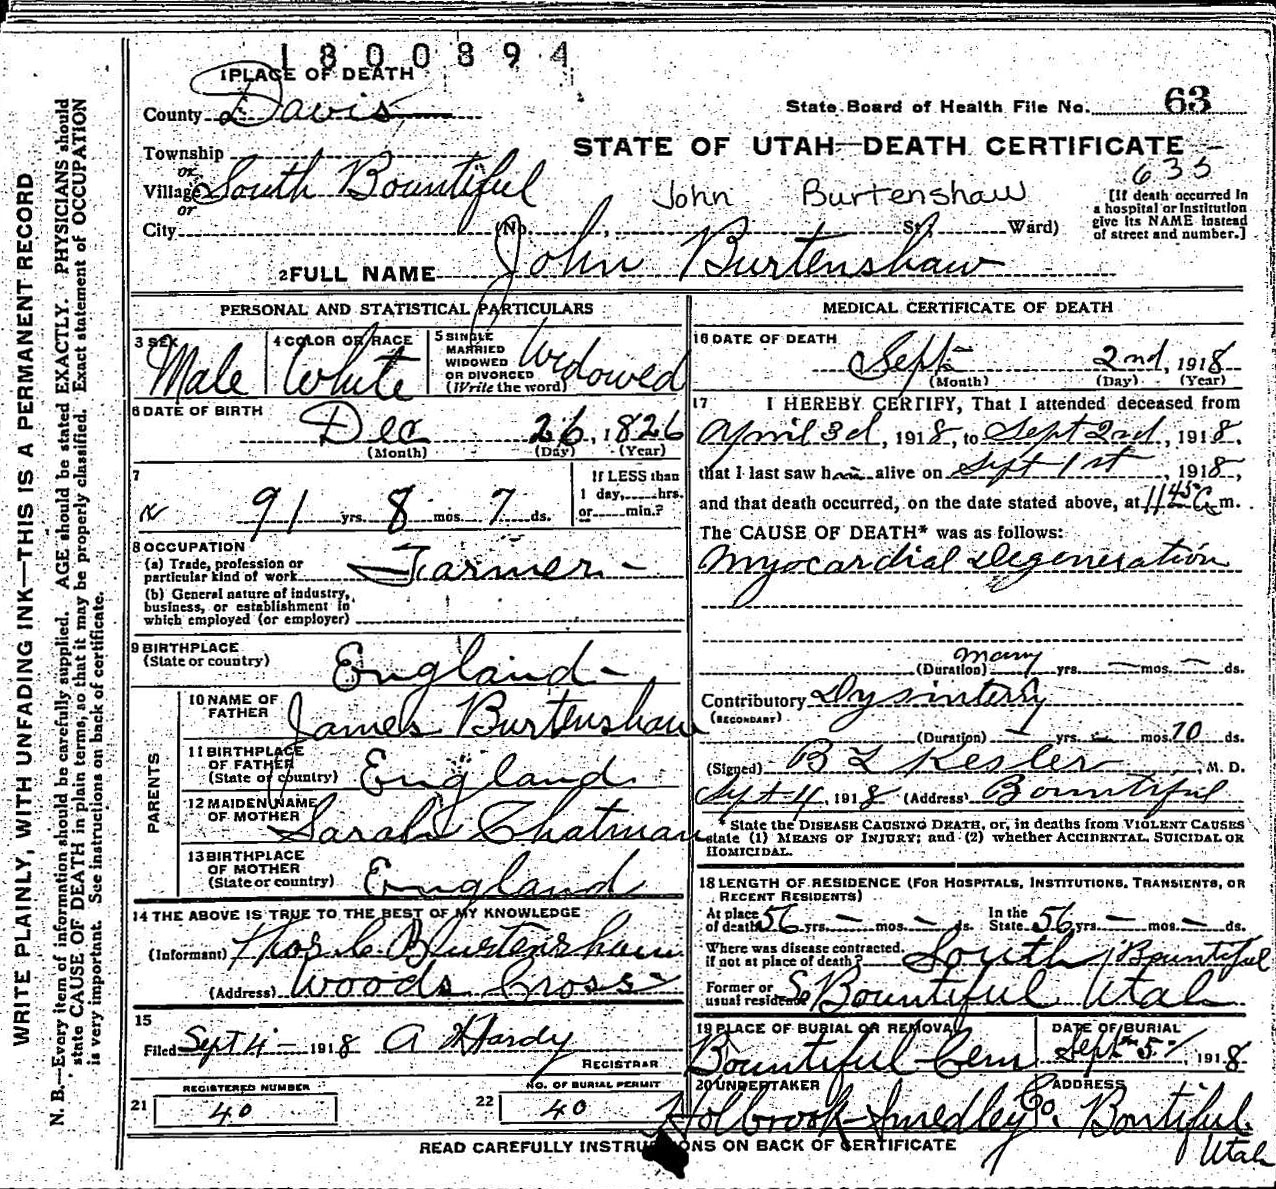 1800894
1 PLACE OF DEATH
County Davis
State Board of Health File No. 63
STATE OF UTAH—DEATH CERTIFICATE
635
Township
or
Village South Bountiful
or
John Burtenshaw
[If death occurred in
a hospital or institution
give its NAME instead
of street and number.]
City (No. , St., Ward)
2 FULL NAME John Burtenshaw
PERSONAL AND STATISTICAL PARTICULARS
3 SEX
Male
4 COLOR OR RACE
White
5 SINGLE
MARRIED
WIDOWED
OR DIVORCED
(Write the word)
Widowed
6 DATE OF BIRTH
Dec 26, 1826
(Month) (Day) (Year)
7
91 yrs. 8 mos. 7 ds.
If LESS than
1 day, hrs.
or min.?
8 OCCUPATION
(a) Trade, profession or
particular kind of work Farmer
(b) General nature of industry,
business, or establishment in
which employed (or employer)
9 BIRTHPLACE
(State or country) England
PARENTS
10 NAME OF
FATHER James Burtenshaw
11 BIRTHPLACE
OF FATHER
(State or country) England
12 MAIDEN NAME
OF MOTHER Sarah Chatman
13 BIRTHPLACE
OF MOTHER
(State or country) England
14 THE ABOVE IS TRUE TO THE BEST OF MY KNOWLEDGE
(Informant) Thos. C. Burtenshaw
(Address) Woods Cross
15
Filed Sept 4 - 1918 A Hardy
REGISTRAR
REGISTERED NUMBER
21 40
NO. OF BURIAL PERMIT
22 40
MEDICAL CERTIFICATE OF DEATH
16 DATE OF DEATH
Sept 2nd, 1918
(Month) (Day) (Year)
17 I HEREBY CERTIFY, That I attended deceased from
April 3d, 1918, to Sept 2nd, 1918.
that I last saw him alive on Sept 1st, 1918,
and that death occurred, on the date stated above, at 1145 a m.
The CAUSE OF DEATH* was as follows:
Myocardial Degeneration
many
(Duration) yrs. — mos. — ds.
Contributory Dysintery
(SECONDARY)
(Duration) — yrs. — mos. 10 ds.
(Signed) B L Kesler, M. D.
Sept 4, 1918 (Address) Bountiful
State the DISEASE CAUSING DEATH, or, in deaths from VIOLENT CAUSES
state (1) MEANS OF INJURY; and (2) whether ACCIDENTAL, SUICIDAL OR
HOMICIDAL.
18 LENGTH OF RESIDENCE (FOR HOSPITALS, INSTITUTIONS, TRANSIENTS, OR
RECENT RESIDENTS)
At place
of death 56 yrs. — mos. — ds.
In the
State 56 yrs. — mos. — ds.
Where was disease contracted,
if not at place of death? South Bountiful
Former or
usual residence So Bountiful Utah
19 PLACE OF BURIAL OR REMOVAL
Bountiful Cem
DATE OF BURIAL
Sept 5 1918
20 UNDERTAKER
Holbrook-Smedley Co.
ADDRESS
Bontiful
Utah
READ CAREFULLY INSTRUCTIONS ON BACK OF CERTIFICATE
WRITE PLAINLY, WITH UNFADING INK—THIS IS A PERMANENT RECORD
N. B.—Every item of information should be carefully supplied. AGE should be stated EXACTLY. PHYSICIANS should
state CAUSE OF DEATH in plain terms, so that it may be properly classified. Exact statement of OCCUPATION
is very important. See instructions on back of certificate.